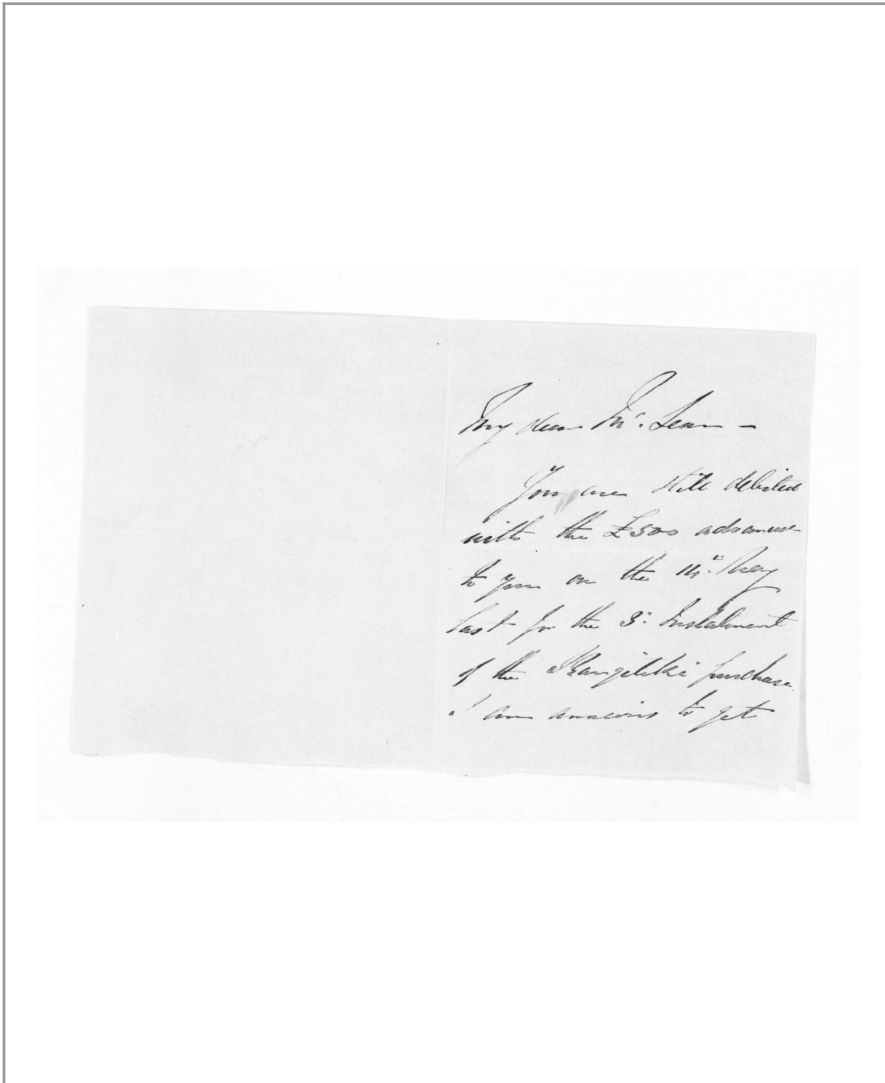 My dear Mc. Lean -
You are still debited
with the £500 advanced
to you on the
last for the 3d. Instalment
of the Rangitiki purchase.
I am anxious to get